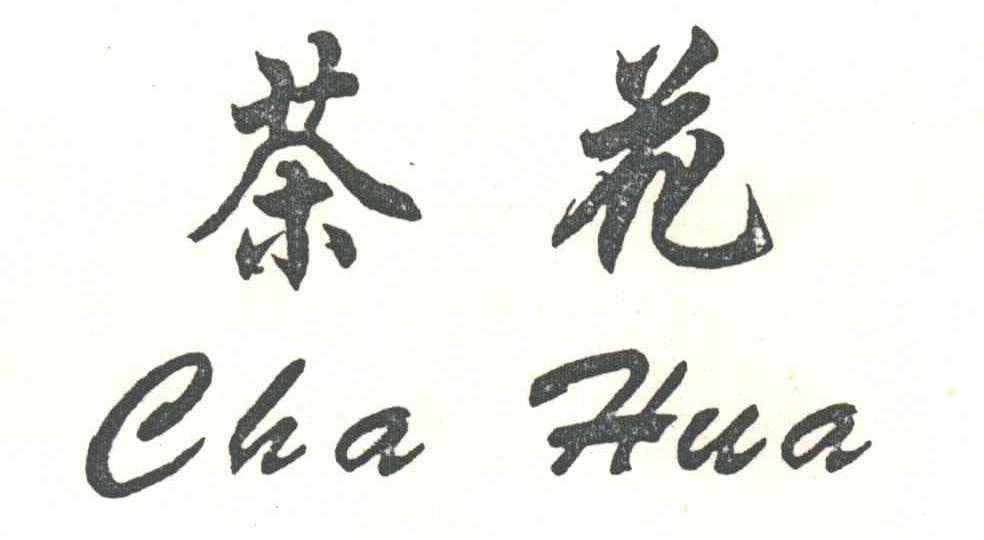 茶花
Cha Hua